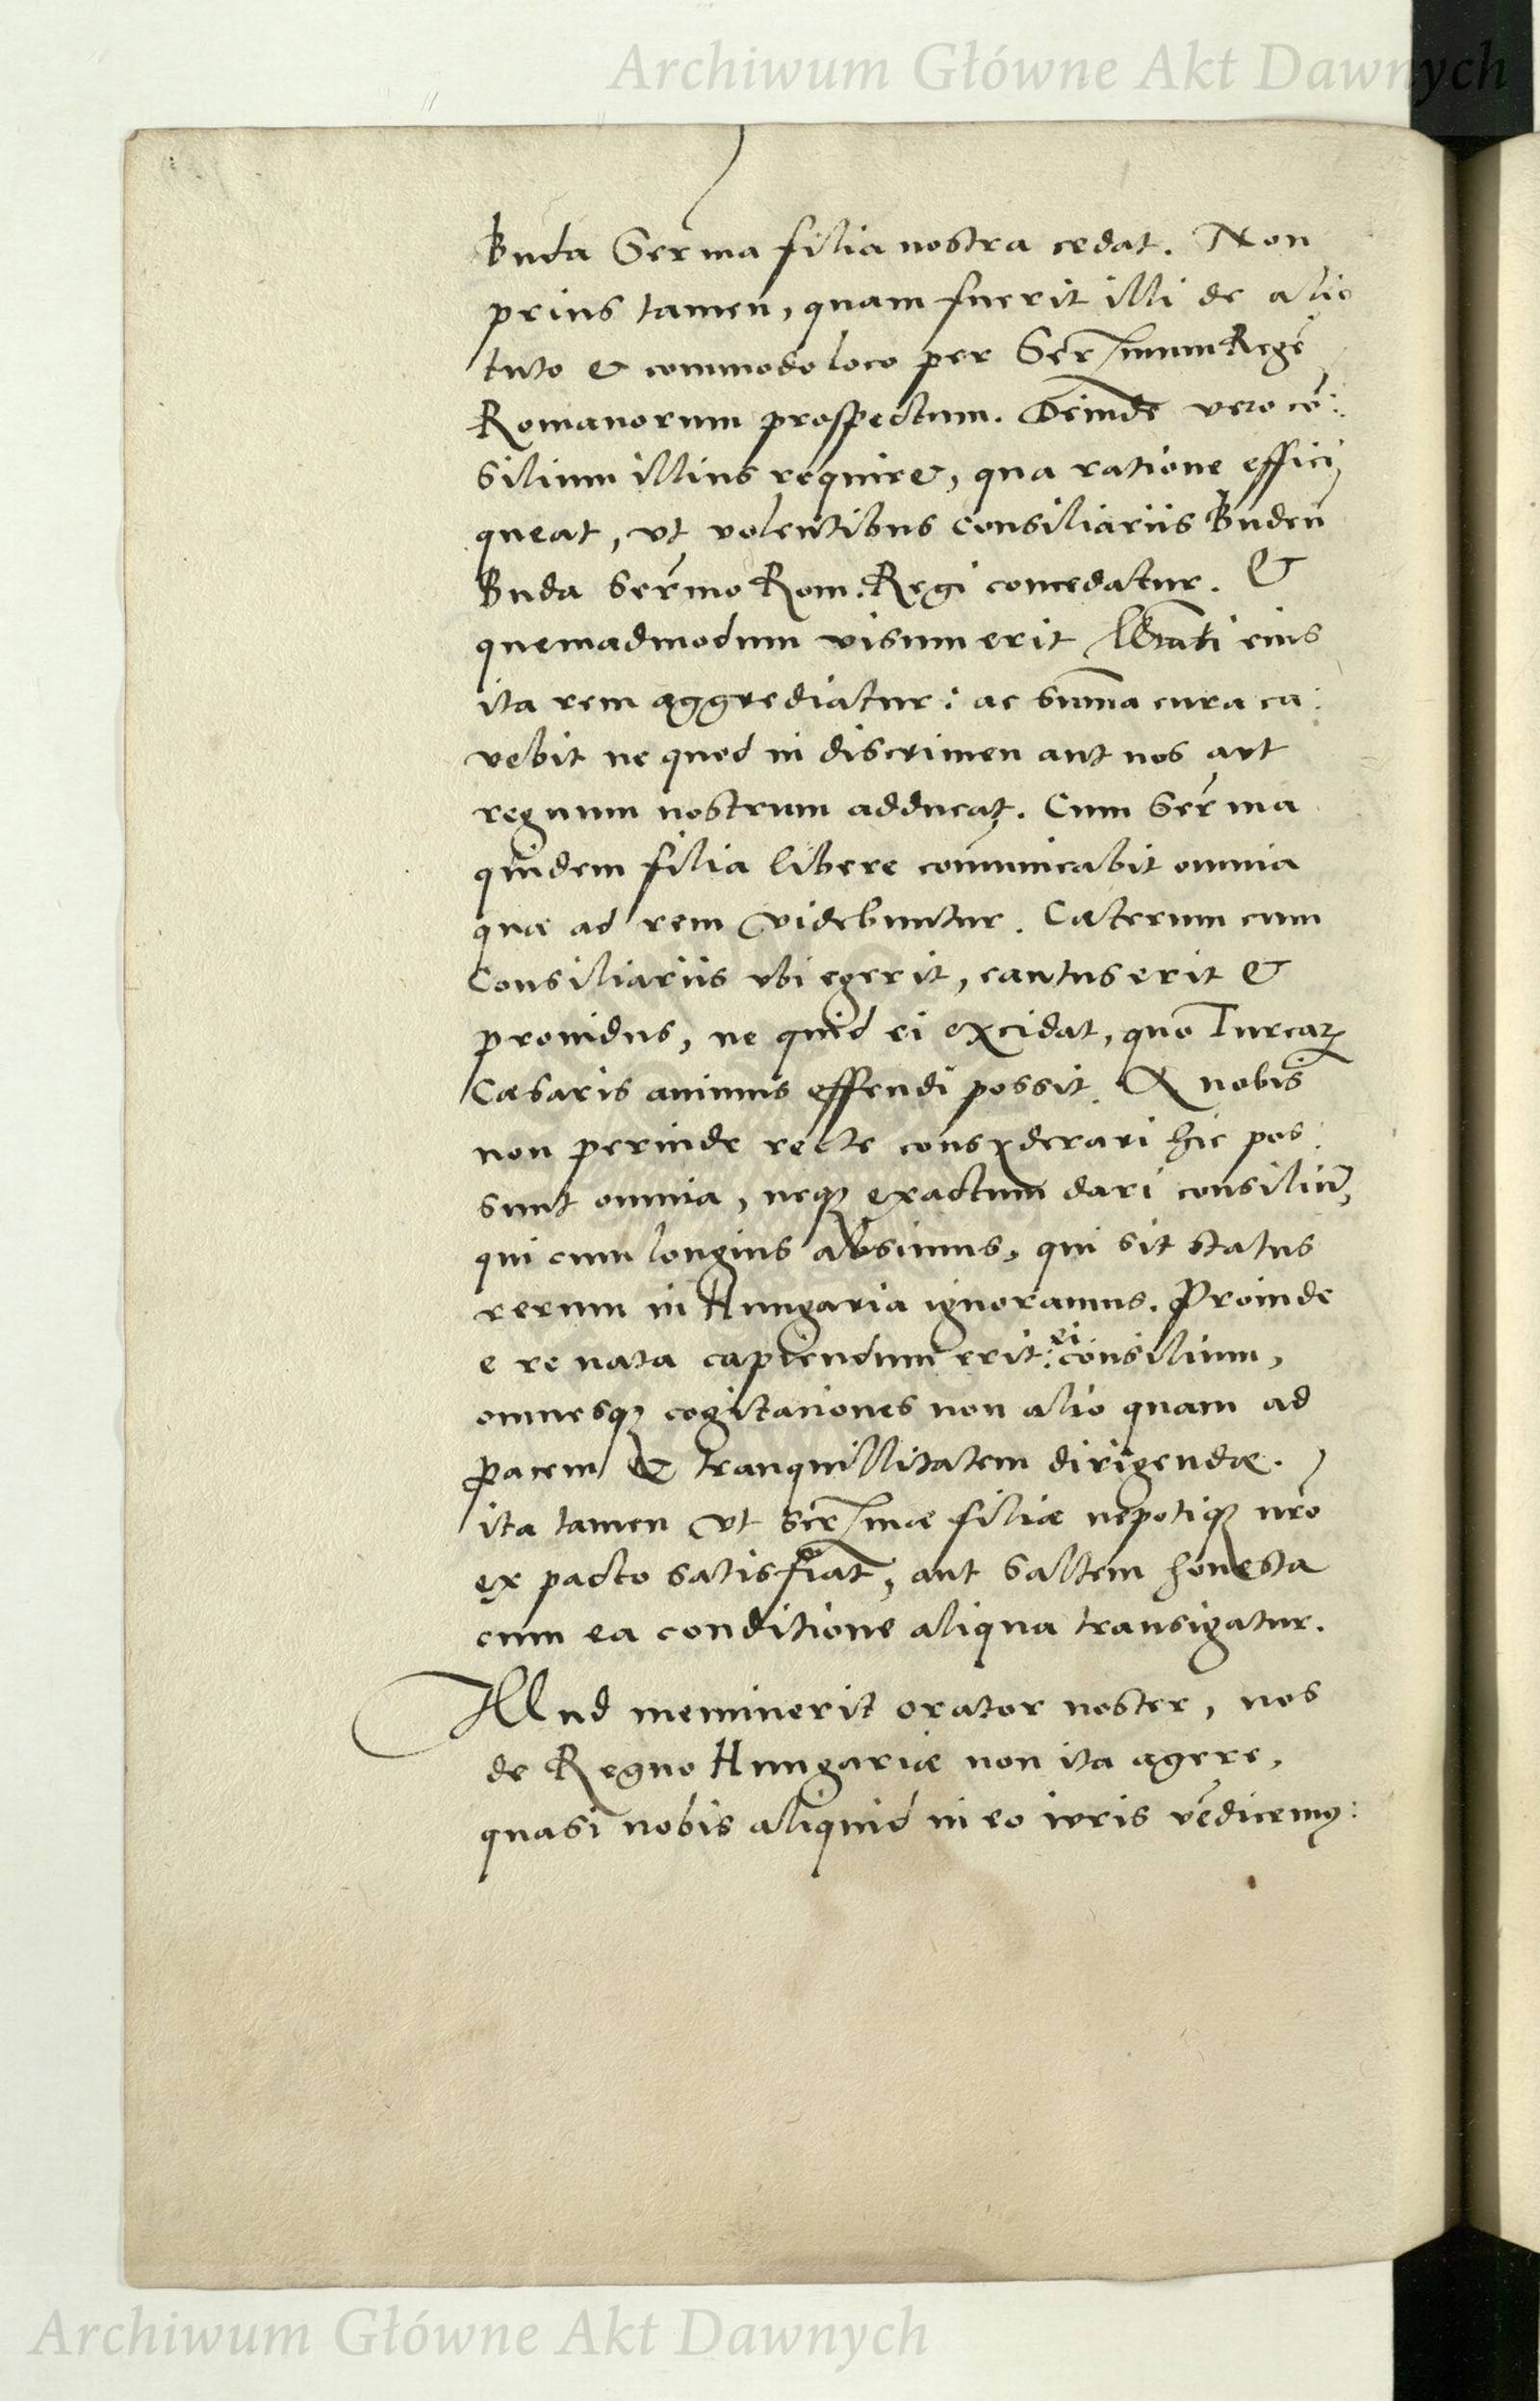 Archiwum Główne Akt Dawnych
Buda Serma filia nostra cedat. Non
prius tamen, quam fuerit illi de alio
tuto & commodo loco per Serssimum Regē
Romanorum prospectum. Deinde vero cō:
silium illius requiret, qua ratione effici
queat, vt volentibus Consiliariis Buden
Buda Sermo Rom. Regi concedatur. &
quemadmodum visum erit eius
ita rem aggrediatur: ac summa cura ca:
vebit ne quod in discrimen aut nos aut
regnum nostrum adducat. Cum Serma
quidem filia libere communicabit omnia
quæ ad rem videbuntur. Cæterum cum
Consiliariis vbi egerit, cautus erit &
prouidus, ne quid ei excidat, quo Turcarꝫ
Cæsaris animus offendi possit. A nobis
non perinde recte considerari hic pos:
sunt omnia, neqꝫ exactum dari consiliū,
qui cum longius absimus, qui sit status
rerum in Hungaria ignoramus. Proinde
e re nata capiendum erit ei consilium,
omnesqꝫ cogitationes non alio quam ad
pacem & tranquillitatem dirigendæ.
ita tamen vt Serssmæ filiæ nepotiqꝫ nrō
ex pacto satisfiat, aut saltem honesta
cum ea conditione aliqua transigatur.
Illud meminerit orator noster, nos
de Regno Hungariæ non ita agere,
quasi nobis aliquid in eo iuris vēdicemꝰ:
Archiwum Główne Akt Dawnych